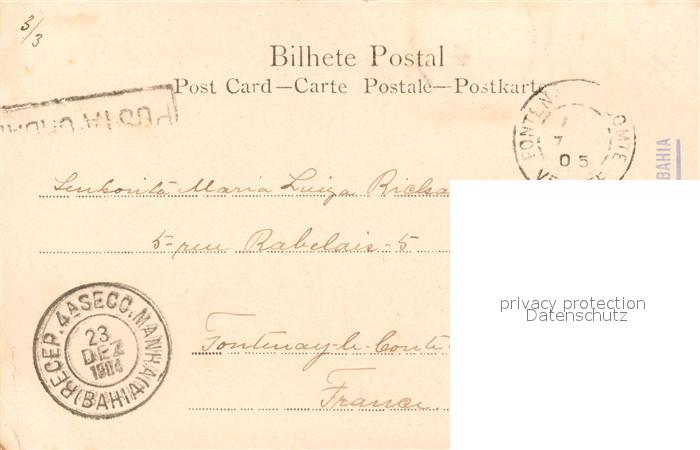 3/3
Bilhete Postal
Post Card—Carte Postale—Postkarte
FONTEN OMTE
7
05
BAHIA
Senhorita Maria Luiza
5 - rue Rabelais - 5
privacy protection
Datenschutz
RECEP. 4ª SECC. MANHÃ (BAHIA)
23
DEZ
1904
Fontenay-le-Comte
France